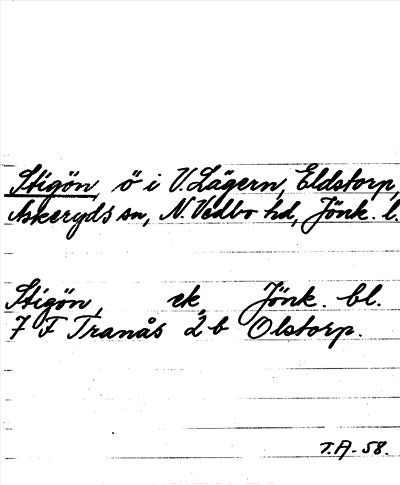 Stigön, ö i V. Lägern, Eldstorp,
Askeryds sn, N. Vedbo hd, Jönk. l.
Stigön, ek, Jönk. bl.
7 F Tranås 2 b Olstorp.
T.A-58.